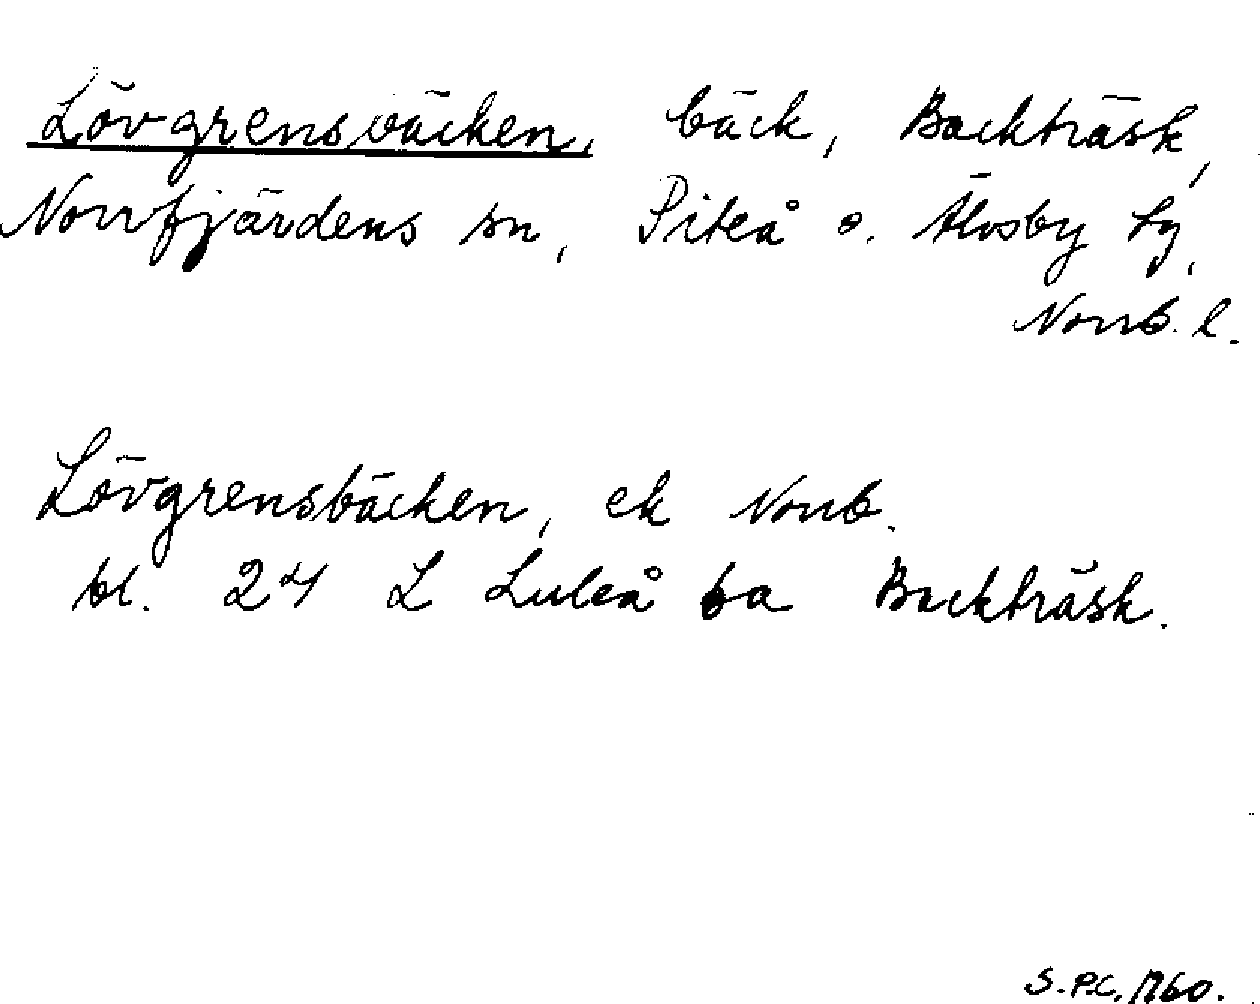 Lövgrensbäcken, bäck, Backträsk,
Norrfjärdens sn, Piteå o. Älvsby tg,
Norrb. l.
Lövgrensbäcken, ek Norrb.
bl. 24 L Luleå ba Backträsk.
S.P.C. 1960.